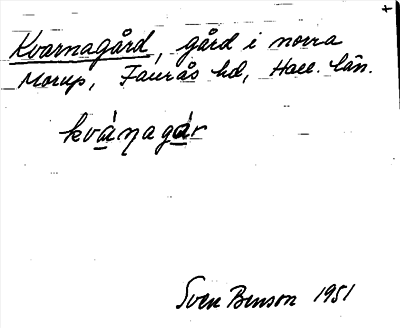 +
Kvarnagård, gård i norra
Morup, Faurås hd, Hall. län.
kvàṇagár
Sven Benson 1951